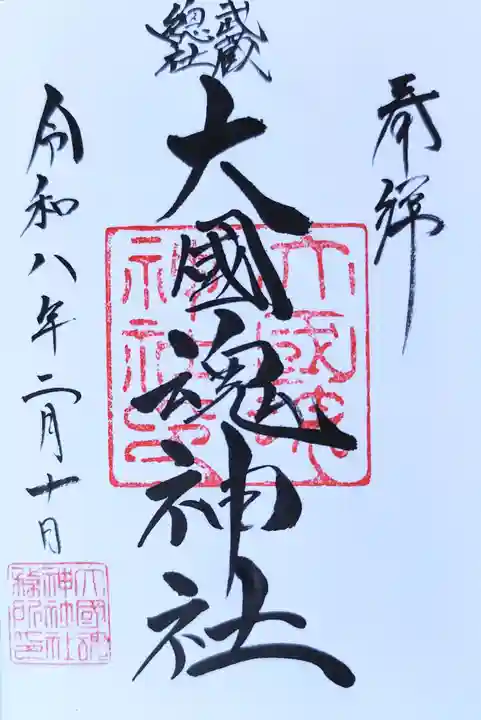 奉拝
武蔵
總社
大國魂神社
令和八年二月十日
大國魂
神社印
大國魂
神社